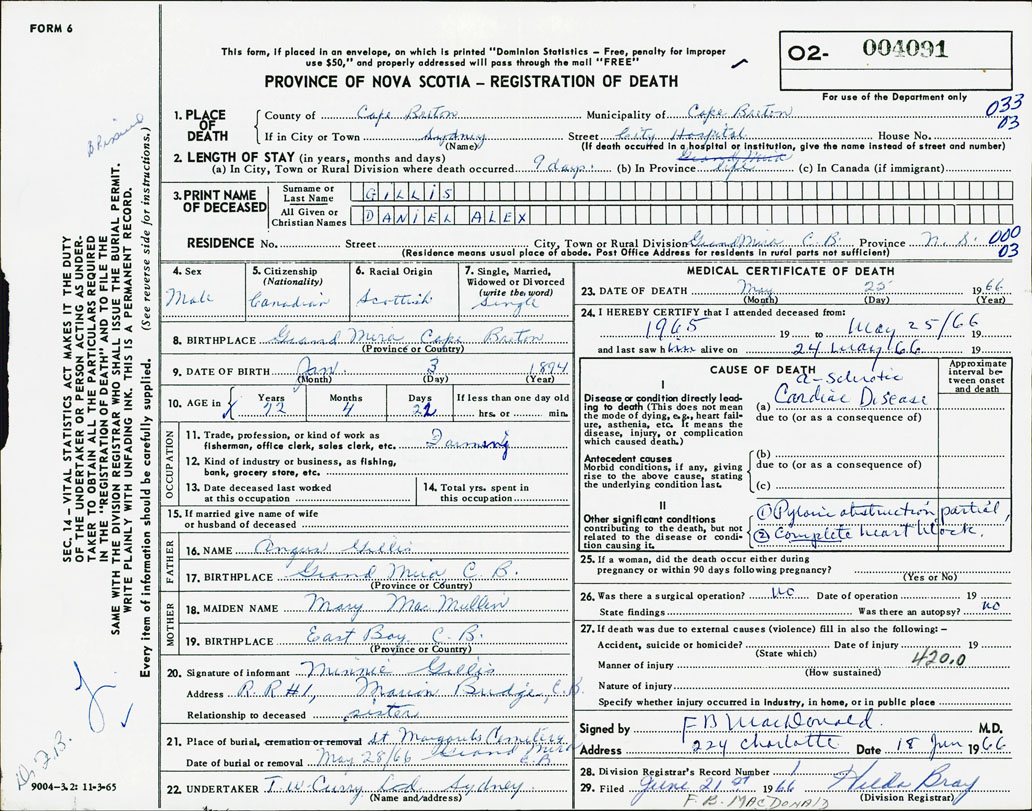 FORM 6
This form, if placed in an envelope, on which is printed "Dominion Statistics – Free, penalty for improper
use $50," and properly addressed will pass through the mail "FREE"
PROVINCE OF NOVA SCOTIA – REGISTRATION OF DEATH
02- 004091
For use of the Department only
033
03
1. PLACE OF DEATH
County of Cape Breton Municipality of Cape Breton
If in City or Town Sydney Street City Hospital House No.
(Name) (If death occurred in a hospital or institution, give the name instead of street and number)
2. LENGTH OF STAY (in years, months and days) Grand Mira
(a) In City, Town or Rural Division where death occurred 9 days. (b) In Province life (c) In Canada (if immigrant)
3. PRINT NAME OF DECEASED
Surname or Last Name GILLIS
All Given or Christian Names DANIEL ALEX
RESIDENCE No. Street City, Town or Rural Division Grand Mira C. B. Province N. S. 000
03
(Residence means usual place of abode. Post Office Address for residents in rural parts not sufficient)
4. Sex
Male
5. Citizenship
(Nationality)
Canadian
6. Racial Origin
Scottish
7. Single, Married,
Widowed or Divorced
(write the word)
Single
8. BIRTHPLACE Grand Mira Cape Breton
(Province or Country)
9. DATE OF BIRTH Jan 3 1894
(Month) (Day) (Year)
10. AGE in
Years Months Days If less than one day old
72 4 22 hrs. or min.
OCCUPATION
11. Trade, profession, or kind of work as
fisherman, office clerk, sales clerk, etc. Farming
12. Kind of industry or business, as fishing,
bank, grocery store, etc.
13. Date deceased last worked
at this occupation
14. Total yrs. spent in
this occupation
15. If married give name of wife
or husband of deceased
FATHER
16. NAME Angus Gillis
17. BIRTHPLACE Grand Mira C. B.
(Province or Country)
MOTHER
18. MAIDEN NAME Mary MacMullin
19. BIRTHPLACE East Bay C. B.
(Province or Country)
20. Signature of informant Minnie Gillis
Address R. R #1, Marion Bridge, C. B.
Relationship to deceased sister
21. Place of burial, cremation or removal St. Margarets Cemetery
Date of burial or removal May 28/66 Grand Mira
C.B.
22. UNDERTAKER T. W. Curry Ltd. Sydney
(Name and address)
MEDICAL CERTIFICATE OF DEATH
23. DATE OF DEATH May 25 1966
(Month) (Day) (Year)
24. I HEREBY CERTIFY that I attended deceased from:
1965 19 to May 25/66 19
and last saw him alive on 24 May '66 19
CAUSE OF DEATH
Approximate
interval be-
tween onset
and death
I
Disease or condition directly lead-
ing to death (This does not mean
the mode of dying, e.g., heart fail-
ure, asthenia, etc. It means the
disease, injury, or complication
which caused death.)
a-sclerotic
(a) Cardiac Disease
due to (or as a consequence of)
Antecedent causes
Morbid conditions, if any, giving
rise to the above cause, stating
the underlying condition last.
(b)
due to (or as a consequence of)
(c)
II
Other significant conditions
contributing to the death, but not
related to the disease or condi-
tion causing it.
① Pyloric obstruction, partial,
② Complete heart block.
25. If a woman, did the death occur either during
pregnancy or within 90 days following pregnancy?
(Yes or No)
26. Was there a surgical operation? no Date of operation 19
State findings Was there an autopsy? no
27. If death was due to external causes (violence) fill in also the following: –
Accident, suicide or homicide? Date of injury 19
(State which) 420.0
Manner of injury
(How sustained)
Nature of injury
Specify whether injury occurred in industry, in home, or in public place
Signed by F B MacDonald M.D.
Address 224 Charlotte Date 18 Jun 1966
28. Division Registrar's Record Number 1
29. Filed June 21st 1966 Hilda Bray
(Division Registrar)
F. B. MACDONALD
SEC. 14 – VITAL STATISTICS ACT MAKES IT THE DUTY
OF THE UNDERTAKER OR PERSON ACTING AS UNDER-
TAKER TO OBTAIN ALL THE PARTICULARS REQUIRED
IN THE "REGISTRATION OF DEATH" AND TO FILE THE
SAME WITH THE DIVISION REGISTRAR WHO SHALL ISSUE THE BURIAL PERMIT.
WRITE PLAINLY WITH UNFADING INK. THIS IS A PERMANENT RECORD.
Every item of information should be carefully supplied. (See reverse side for instructions.)
9004-3.2: 11-3-65